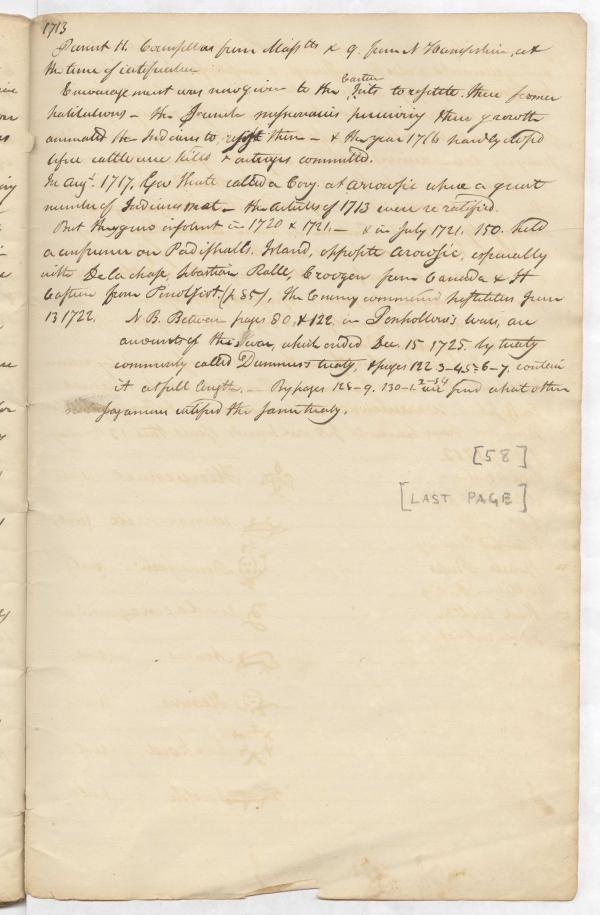 1713
Present 11. Counsellors from Massts & 9. from N Hampshire, at
the time of ratification
Encouragement was now given to the Eastern Ints to resettle there former
habitations – the French missionaries perceiving there growth
animated the Indians to resist them – & the year 1716 hardly closed
before cattle were killed & outrages committed.
In Augt. 1717, Gov Shute called a Cong. at Arrowsic where a great
number of Indians met – the Articles of 1713 were re ratified.
But they grew insolent in 1720 & 1721. – & in July 1721, 150. held
a conference on Padishalls Island, opposite Arowsic, especially
with De la chase, Sebastian Ralle, Croozen from Canada & St
Castien from Penobscot. (p. 85), The Enemy commenced hostilities June
13 1722. N. B. Between pages 80, & 122 in Penhollow's wars, an
account of this war, which ended Dec. 15 1725. by treaty
commonly called Dummer's treaty, & pages 122. 3–4 5 6–7. contain
it at full length. – By pages 128–9. 130–1 we find what other
Sagamores ratified the same treaty.
[58]
[LAST PAGE]